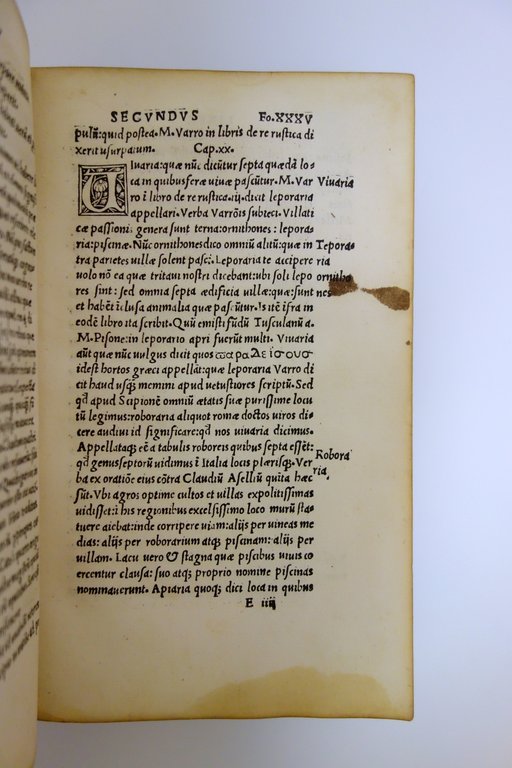 SECVNDVS Fo.XXXV
pulũ: quid postea. M. Varro in libris de re rustica di
xerit usurpatum. Cap.xx.
Uiuaria: quæ nũc dicũtur septa quædã lo-
ca in quibus feræ uiuæ pascũtur. M. Var Viuaria
ro ĩ libro de re rustica.iij. dicit leporaria
appellari. Verba Varrõis subieci. Villati
cæ passioni genera sunt terna: ornithones: lepora-
ria: piscinæ. Nũc ornithones dico omniũ alitũ: quæ in Tepora-
tra parietes uillæ solent pasci. Leporaria te accipere ria
uolo nõ ea quæ tritaui nostri dicebant: ubi soli lepo ornitho
res sint: sed omnia septa ædificia uillæ: quæ: sunt nes
et habẽt ĩclusa animalia quæ pascũtur. Is itẽ ĩfra in
eodẽ libro ita scribit. Quũ emisti fũdũ Tusculanũ a.
M. Pisone: in leporario apri fuerũt multi. Viuaria
aũt quæ nũc uulgus dicit quos παραδείσουσ
idest hortos græci appellãt: quæ leporaria Varro di
cit haud usq̃ memini apud uetustiores scriptũ. Sed
qd apud Scipionẽ omniũ ætatis suæ purissime locu
tũ legimus: roboraria aliquot romæ doctos uiros di-
cere audiui id significare: qd nos uiuaria dicimus.
Appellataq; eẽ a tabulis roboreis quibus septa essẽt:
qd genus septorũ uidimus ĩ Italia locis plærisq;. Ver Robora
ba ex oratiõe eius cõtra Claudiũ Aselliũ quita hæc ria.
sũt. Vbi agros optime cultos et uillas expolitissimas
uidisset: ĩ his regionibus excelsissimo loco murũ sta-
tuere aiebat: inde corripere uiam: alijs per uineas me
dias: alijs per roborarium atq; piscinam: alijs per
uillam. Lacu uero & stagna quæ piscibus uiuis co
ercentur clausa: suo atq; proprio nomine piscinas
nominauerunt. Apiaria quoq; dici loca in quibus
E iiij